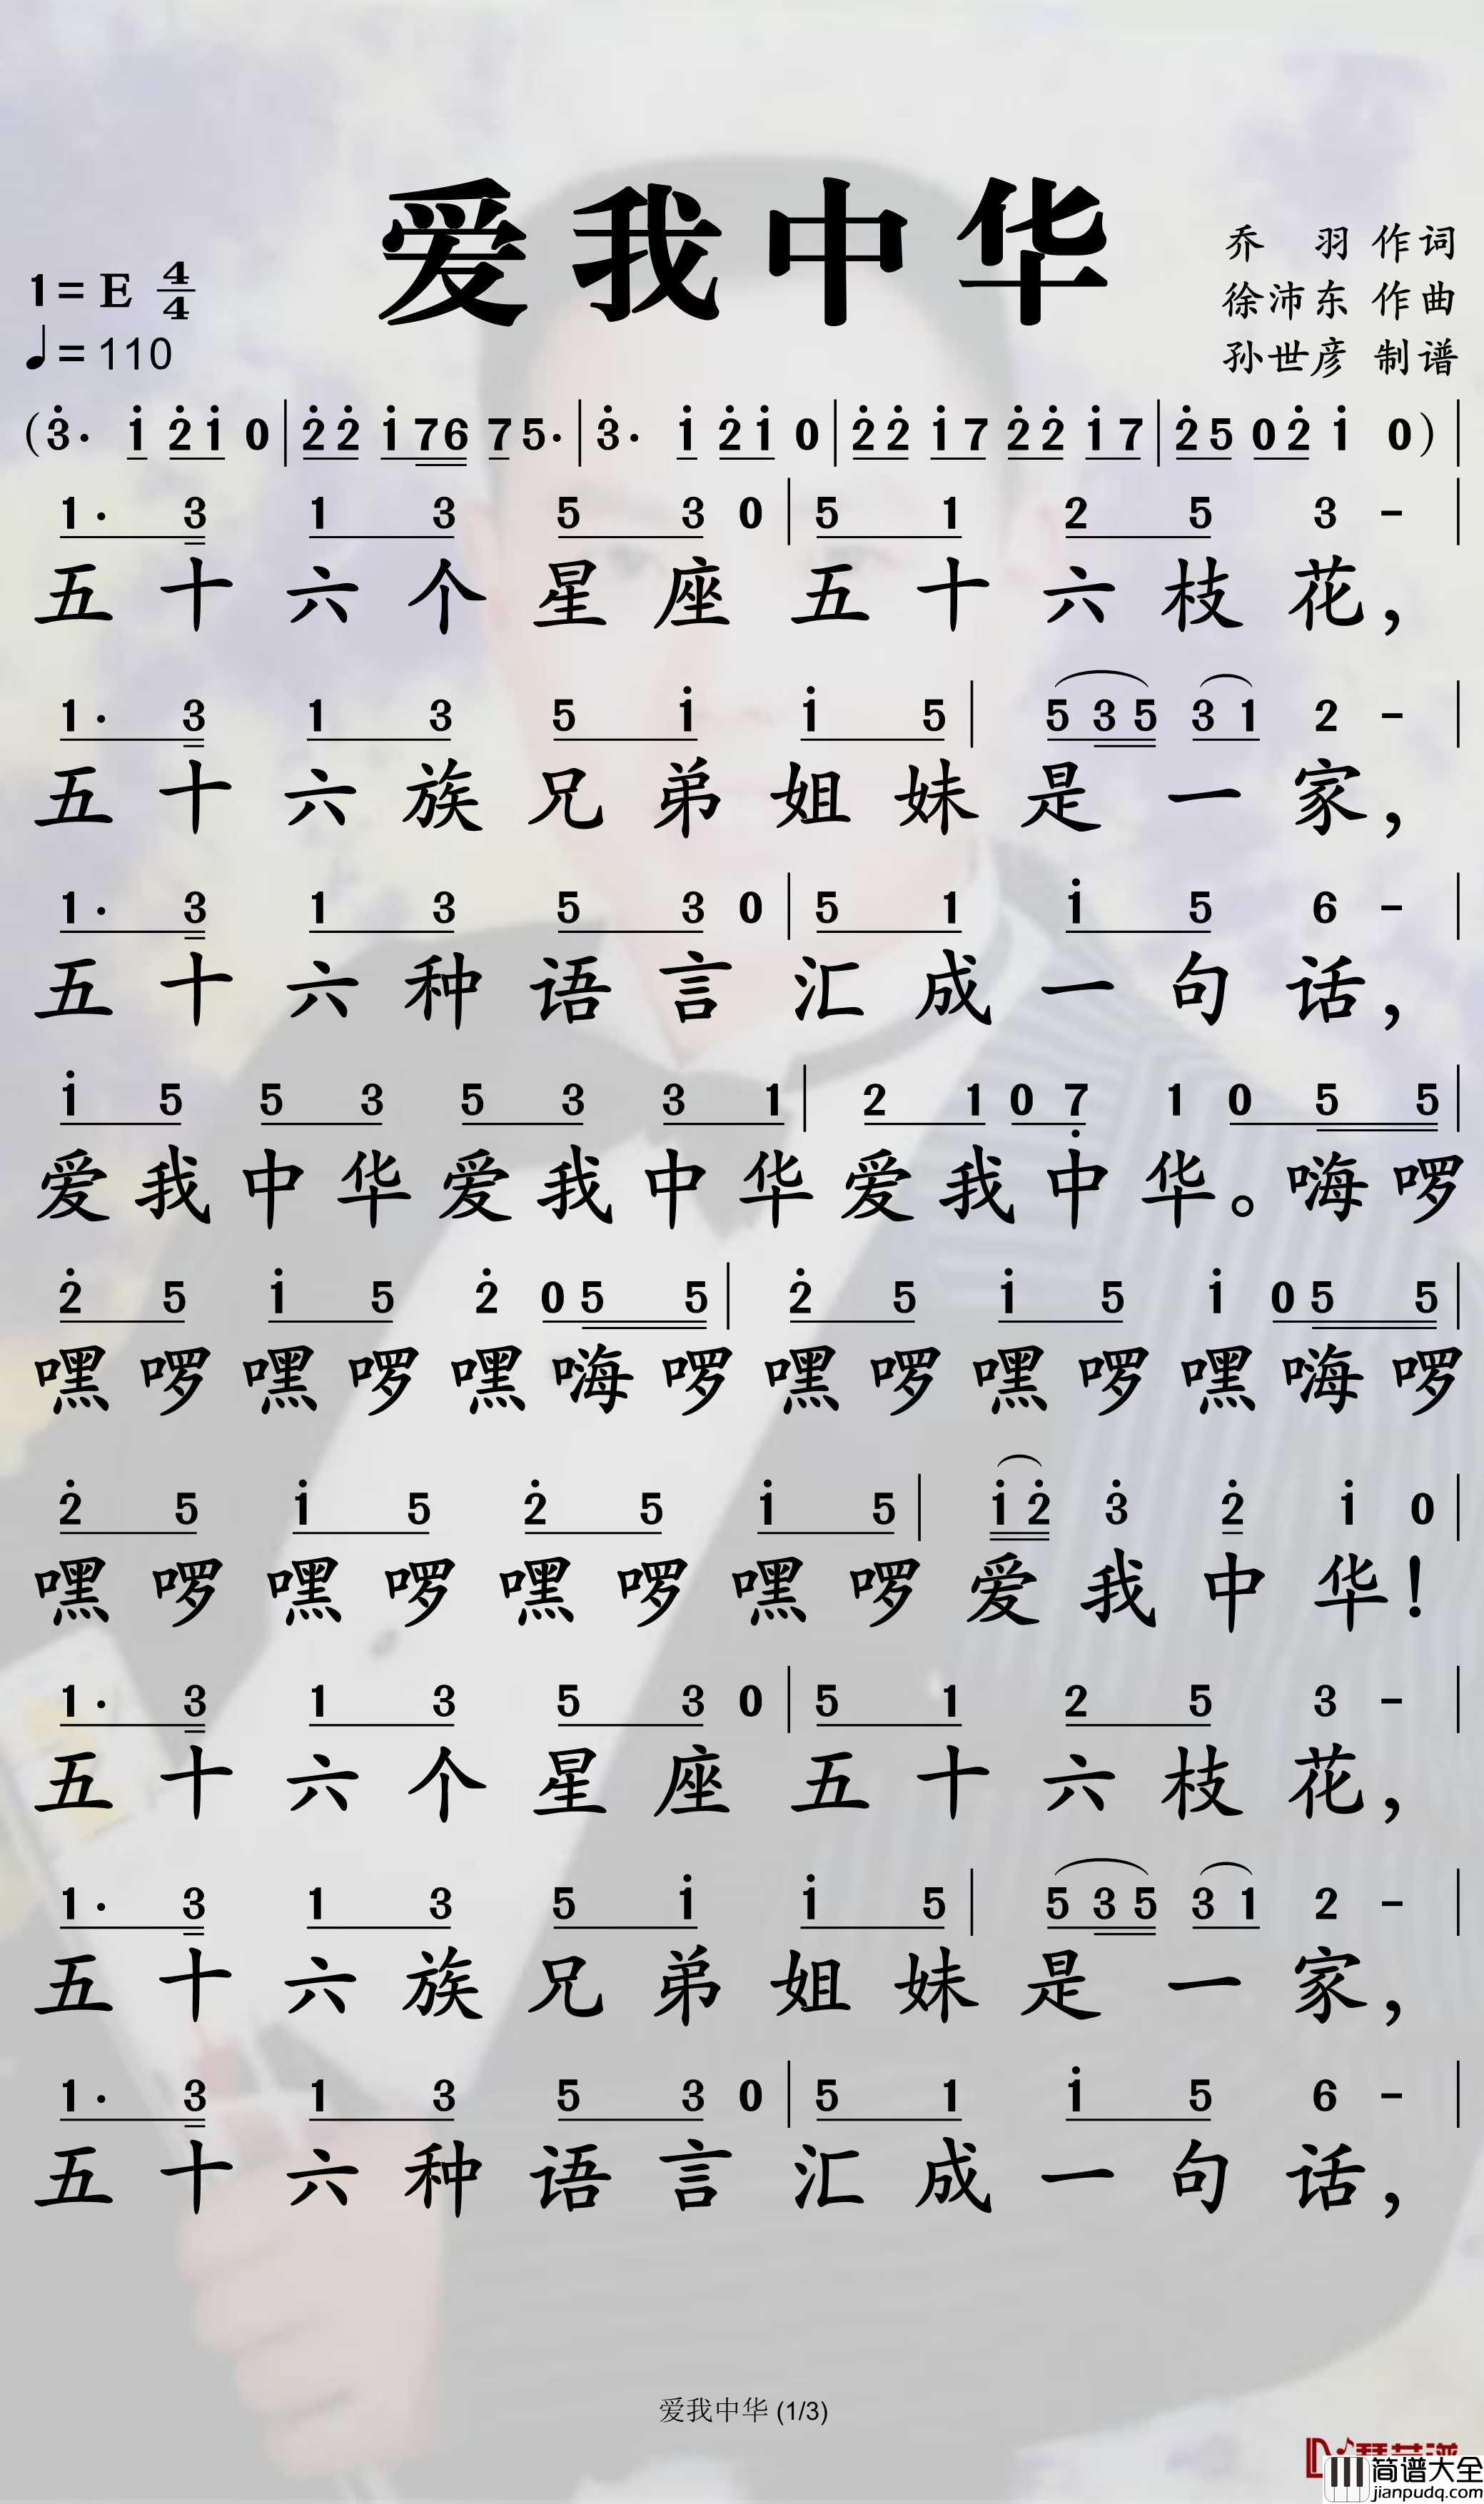 爱我中华
乔 羽 作词
徐沛东 作曲
孙世彦 制谱
1=E 4/4
♩=110
(3̇· 1̇ 2̇ 1̇ 0 | 2̇ 2̇ 1̇ 7 6 7 5· | 3̇· 1̇ 2̇ 1̇ 0 | 2̇ 2̇ 1̇ 7 2̇ 2̇ 1̇ 7 | 2̇ 5 0 2̇ 1̇ 0) |
1· 3 1 3 5 3 0 | 5 1 2 5 3 - |
五十六个星座五十六枝花，
1· 3 1 3 5 1̇ 1̇ 5 | 5 3 5 3 1 2 - |
五十六族兄弟姐妹是一家，
1· 3 1 3 5 3 0 | 5 1 1̇ 5 6 - |
五十六种语言汇成一句话，
1̇ 5 5 3 5 3 3 1 | 2 1 0 7̣ 1 0 5 5 |
爱我中华爱我中华爱我中华。嗨啰
2̇ 5 1̇ 5 2̇ 0 5 5 | 2̇ 5 1̇ 5 1̇ 0 5 5 |
嘿啰嘿啰嘿嗨啰嘿啰嘿啰嘿嗨啰
2̇ 5 1̇ 5 2̇ 5 1̇ 5 | 1̇ 2̇ 3̇ 2̇ 1̇ 0 |
嘿啰嘿啰嘿啰嘿啰爱我中华！
1· 3 1 3 5 3 0 | 5 1 2 5 3 - |
五十六个星座五十六枝花，
1· 3 1 3 5 1̇ 1̇ 5 | 5 3 5 3 1 2 - |
五十六族兄弟姐妹是一家，
1· 3 1 3 5 3 0 | 5 1 1̇ 5 6 - |
五十六种语言汇成一句话，
爱我中华 (1/3)
简谱大全
jianpudq.com